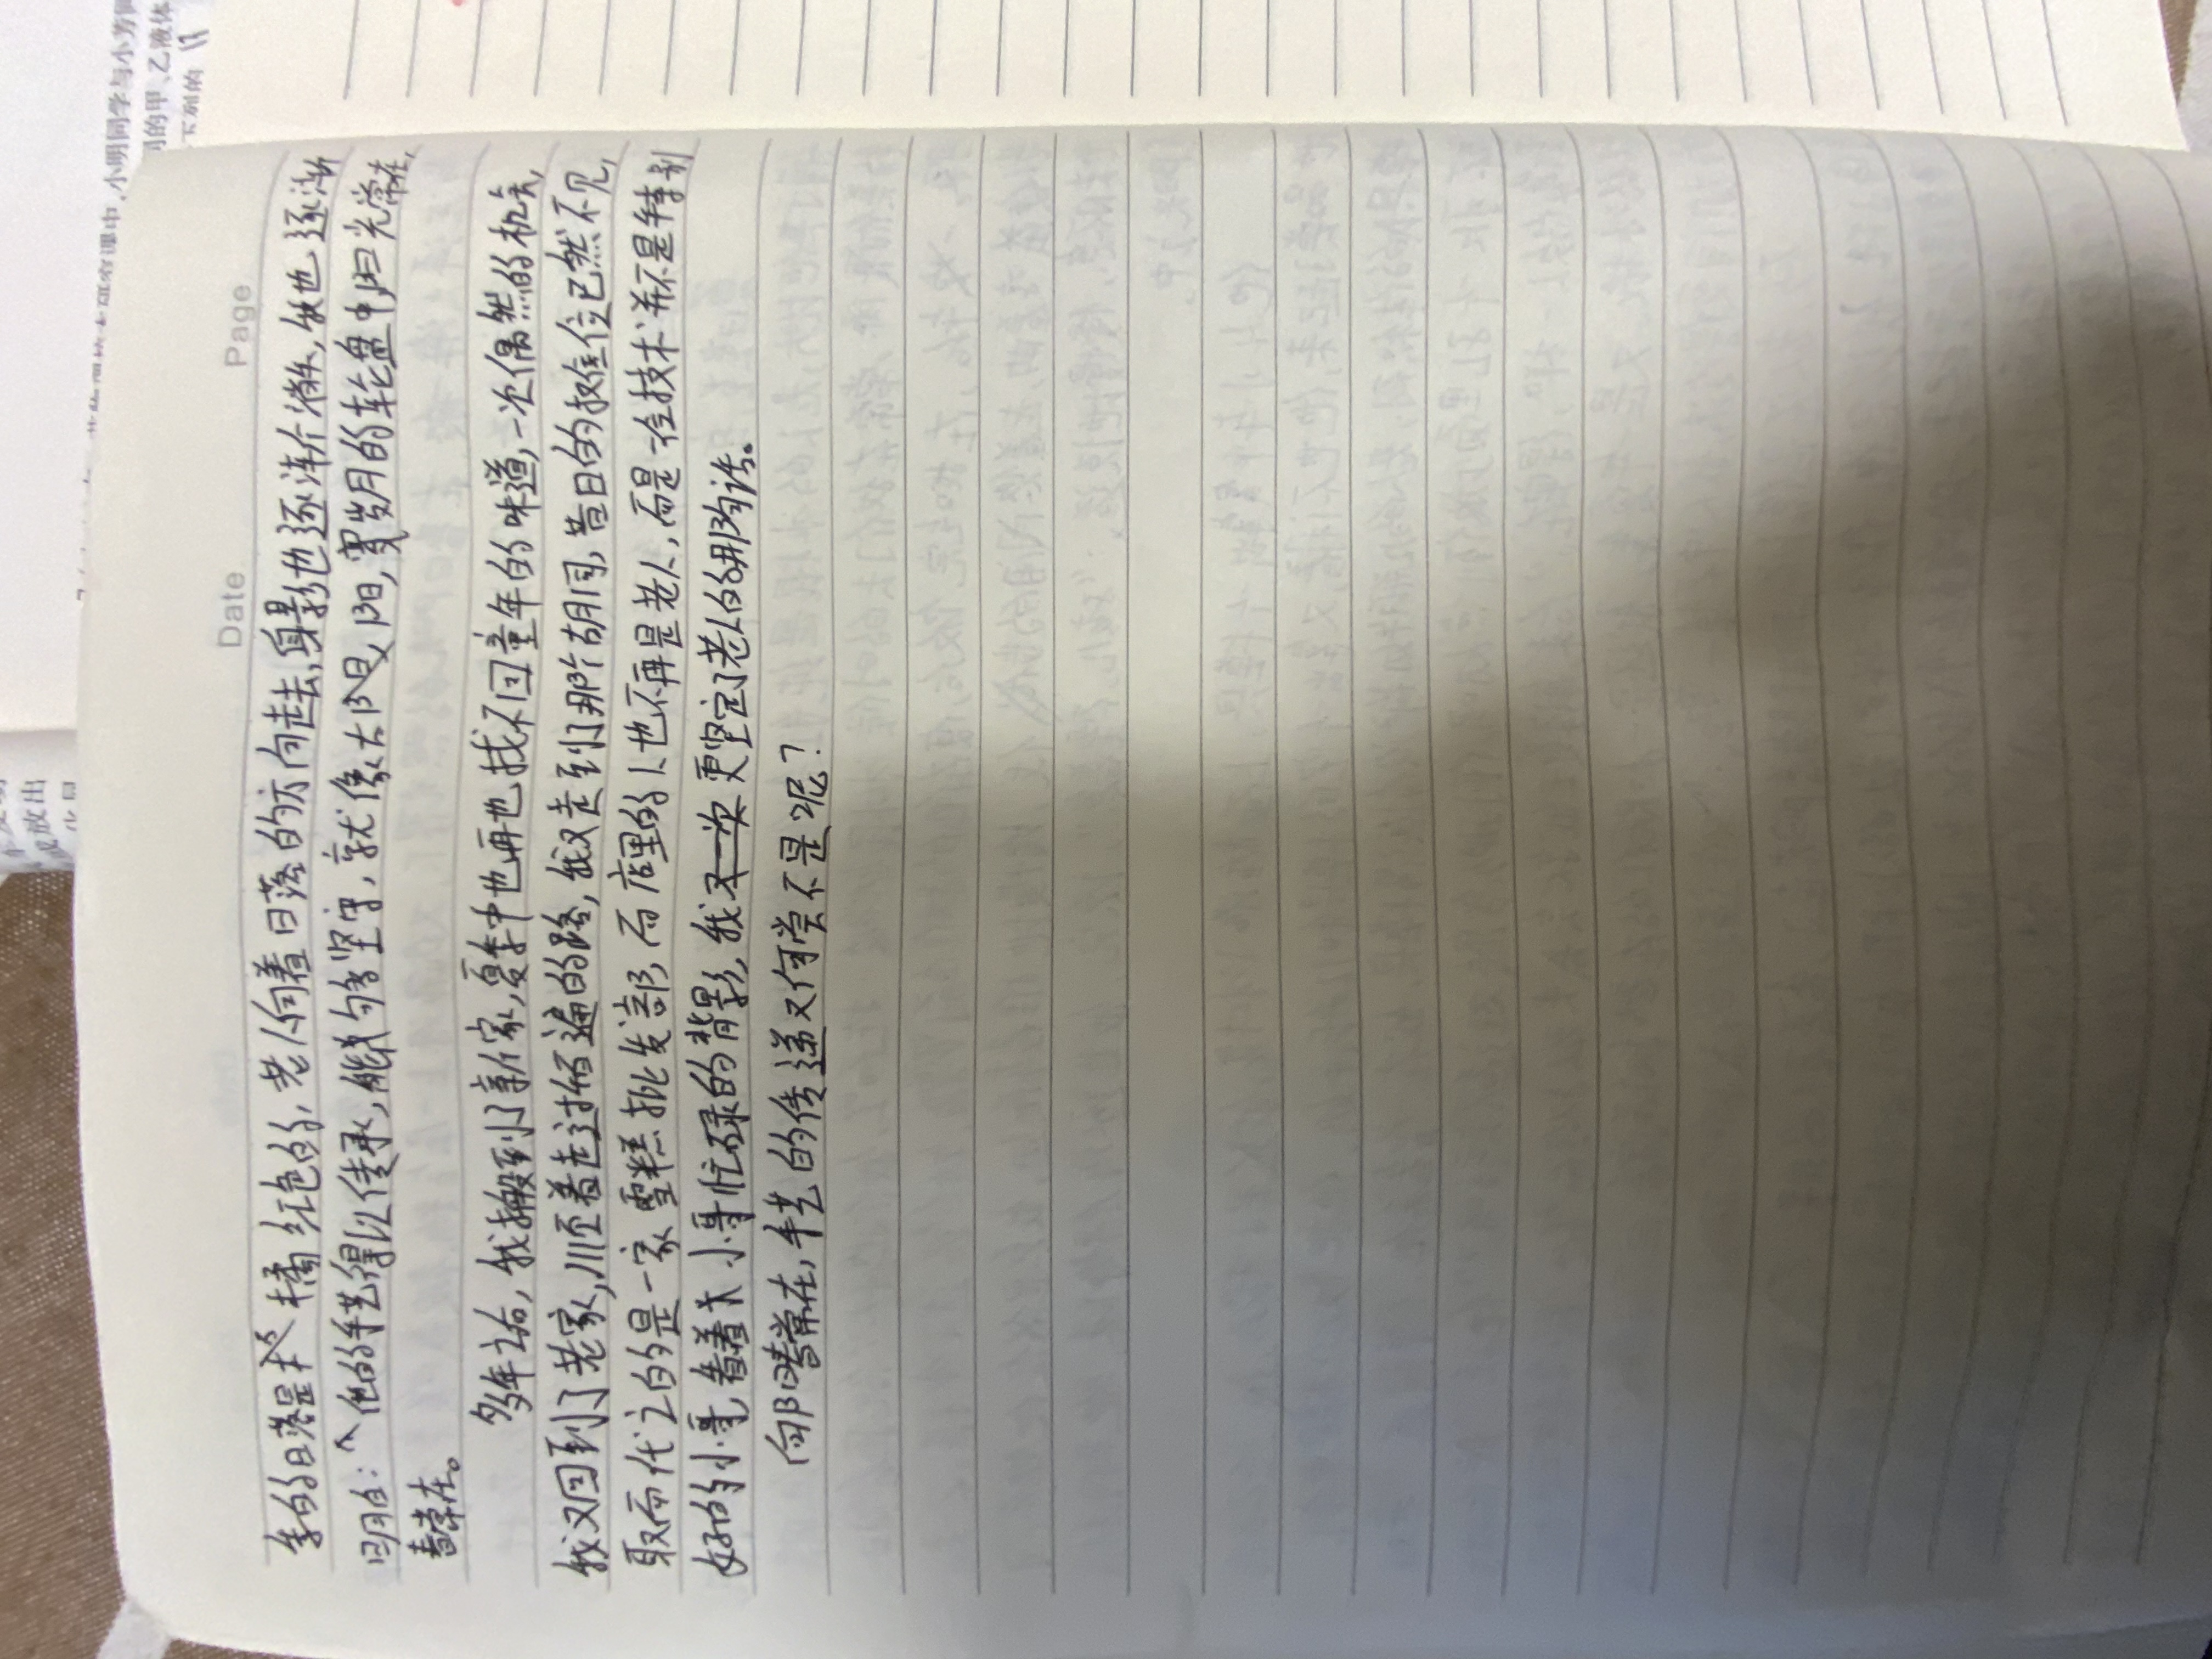 Date Page
季的日落是橘红色的，老人向着日落的方向走去，身影也逐渐消失，我也逐渐
明白：他的手艺得以传承，能够坚守，就像太阳，岁月的轮盘中，阳光常在，
春常在。
多年之后，我搬到了新家，夏季中也再也找不回童年的味道，一次偶然的机会，
我又回到了老家，顺着走过的路，我又走到了那个胡同，昔日的位已然不见，
取而代之的是一家雪糕批发部，而店里的人也不再是老人，而是一位技术并不是特别
好的小哥，看着小哥忙碌的背影，我更坚定了老人的那句话。
向阳常在，手艺的传递又何尝不是呢？
小明同学与小芳同
的甲、乙液体
下列的
放出